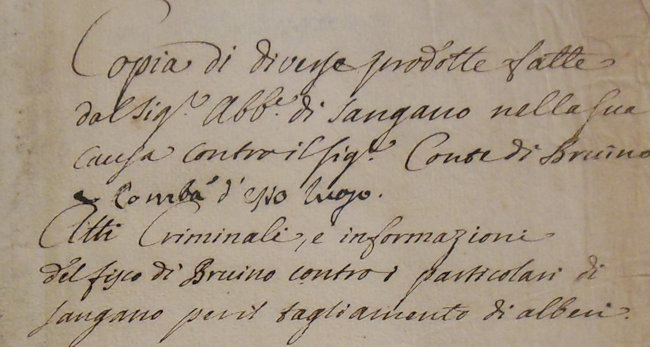 Copia di diverse prodotte fatte
dal Sig.r Abb.e di Sangano nella sua
causa contro il Sig.r Conte di Bruino
e Com.tà d'esso luogo.
Atti Criminali, e informazioni
del fisco di Bruino contro i particolari di
Sangano per il tagliamento di alberi.